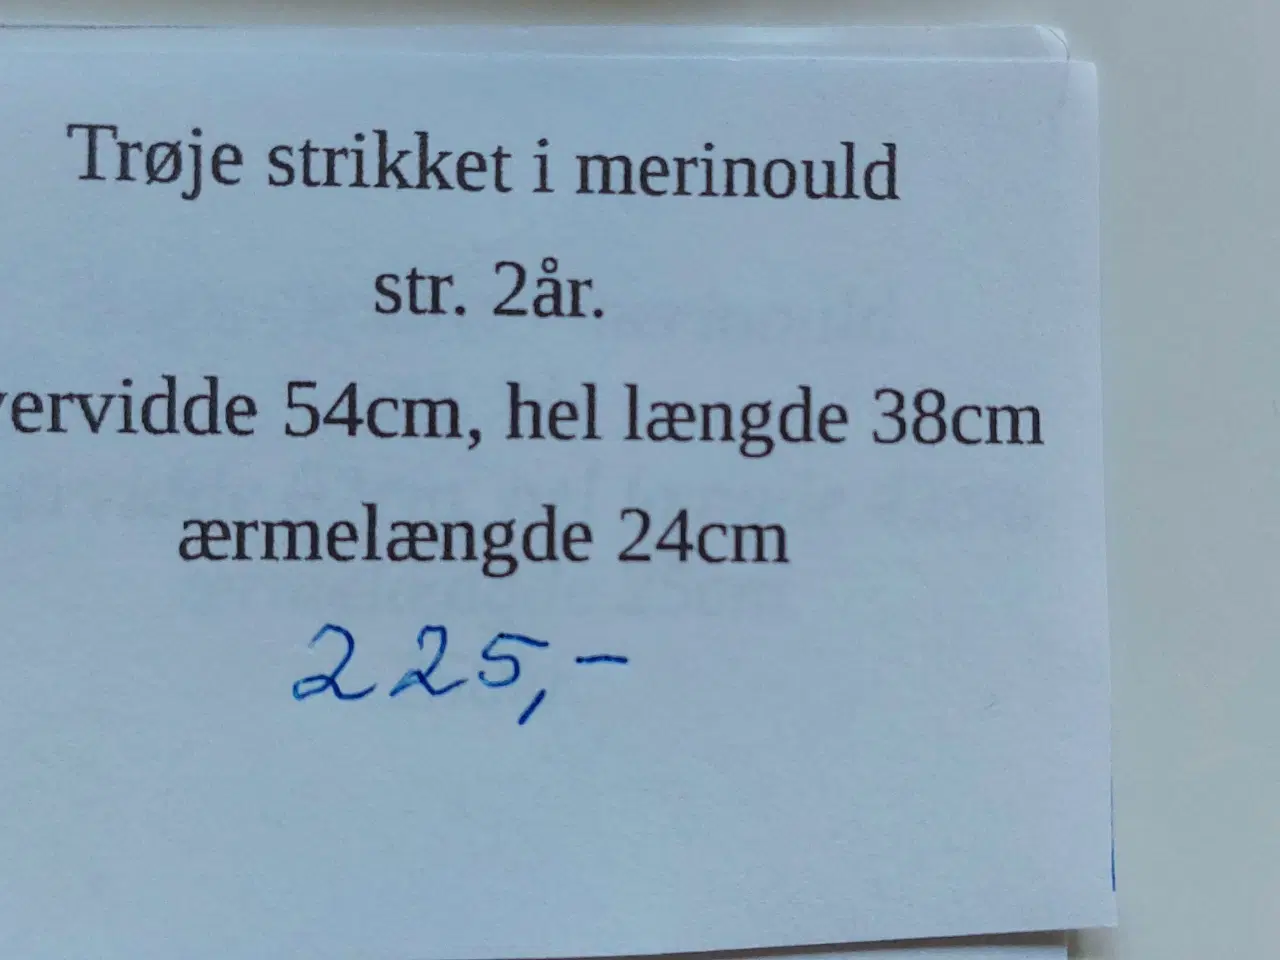 Trøje strikket i merinould
str. 2år.
54cm, hel længde 38cm
ærmelængde 24cm
225,-